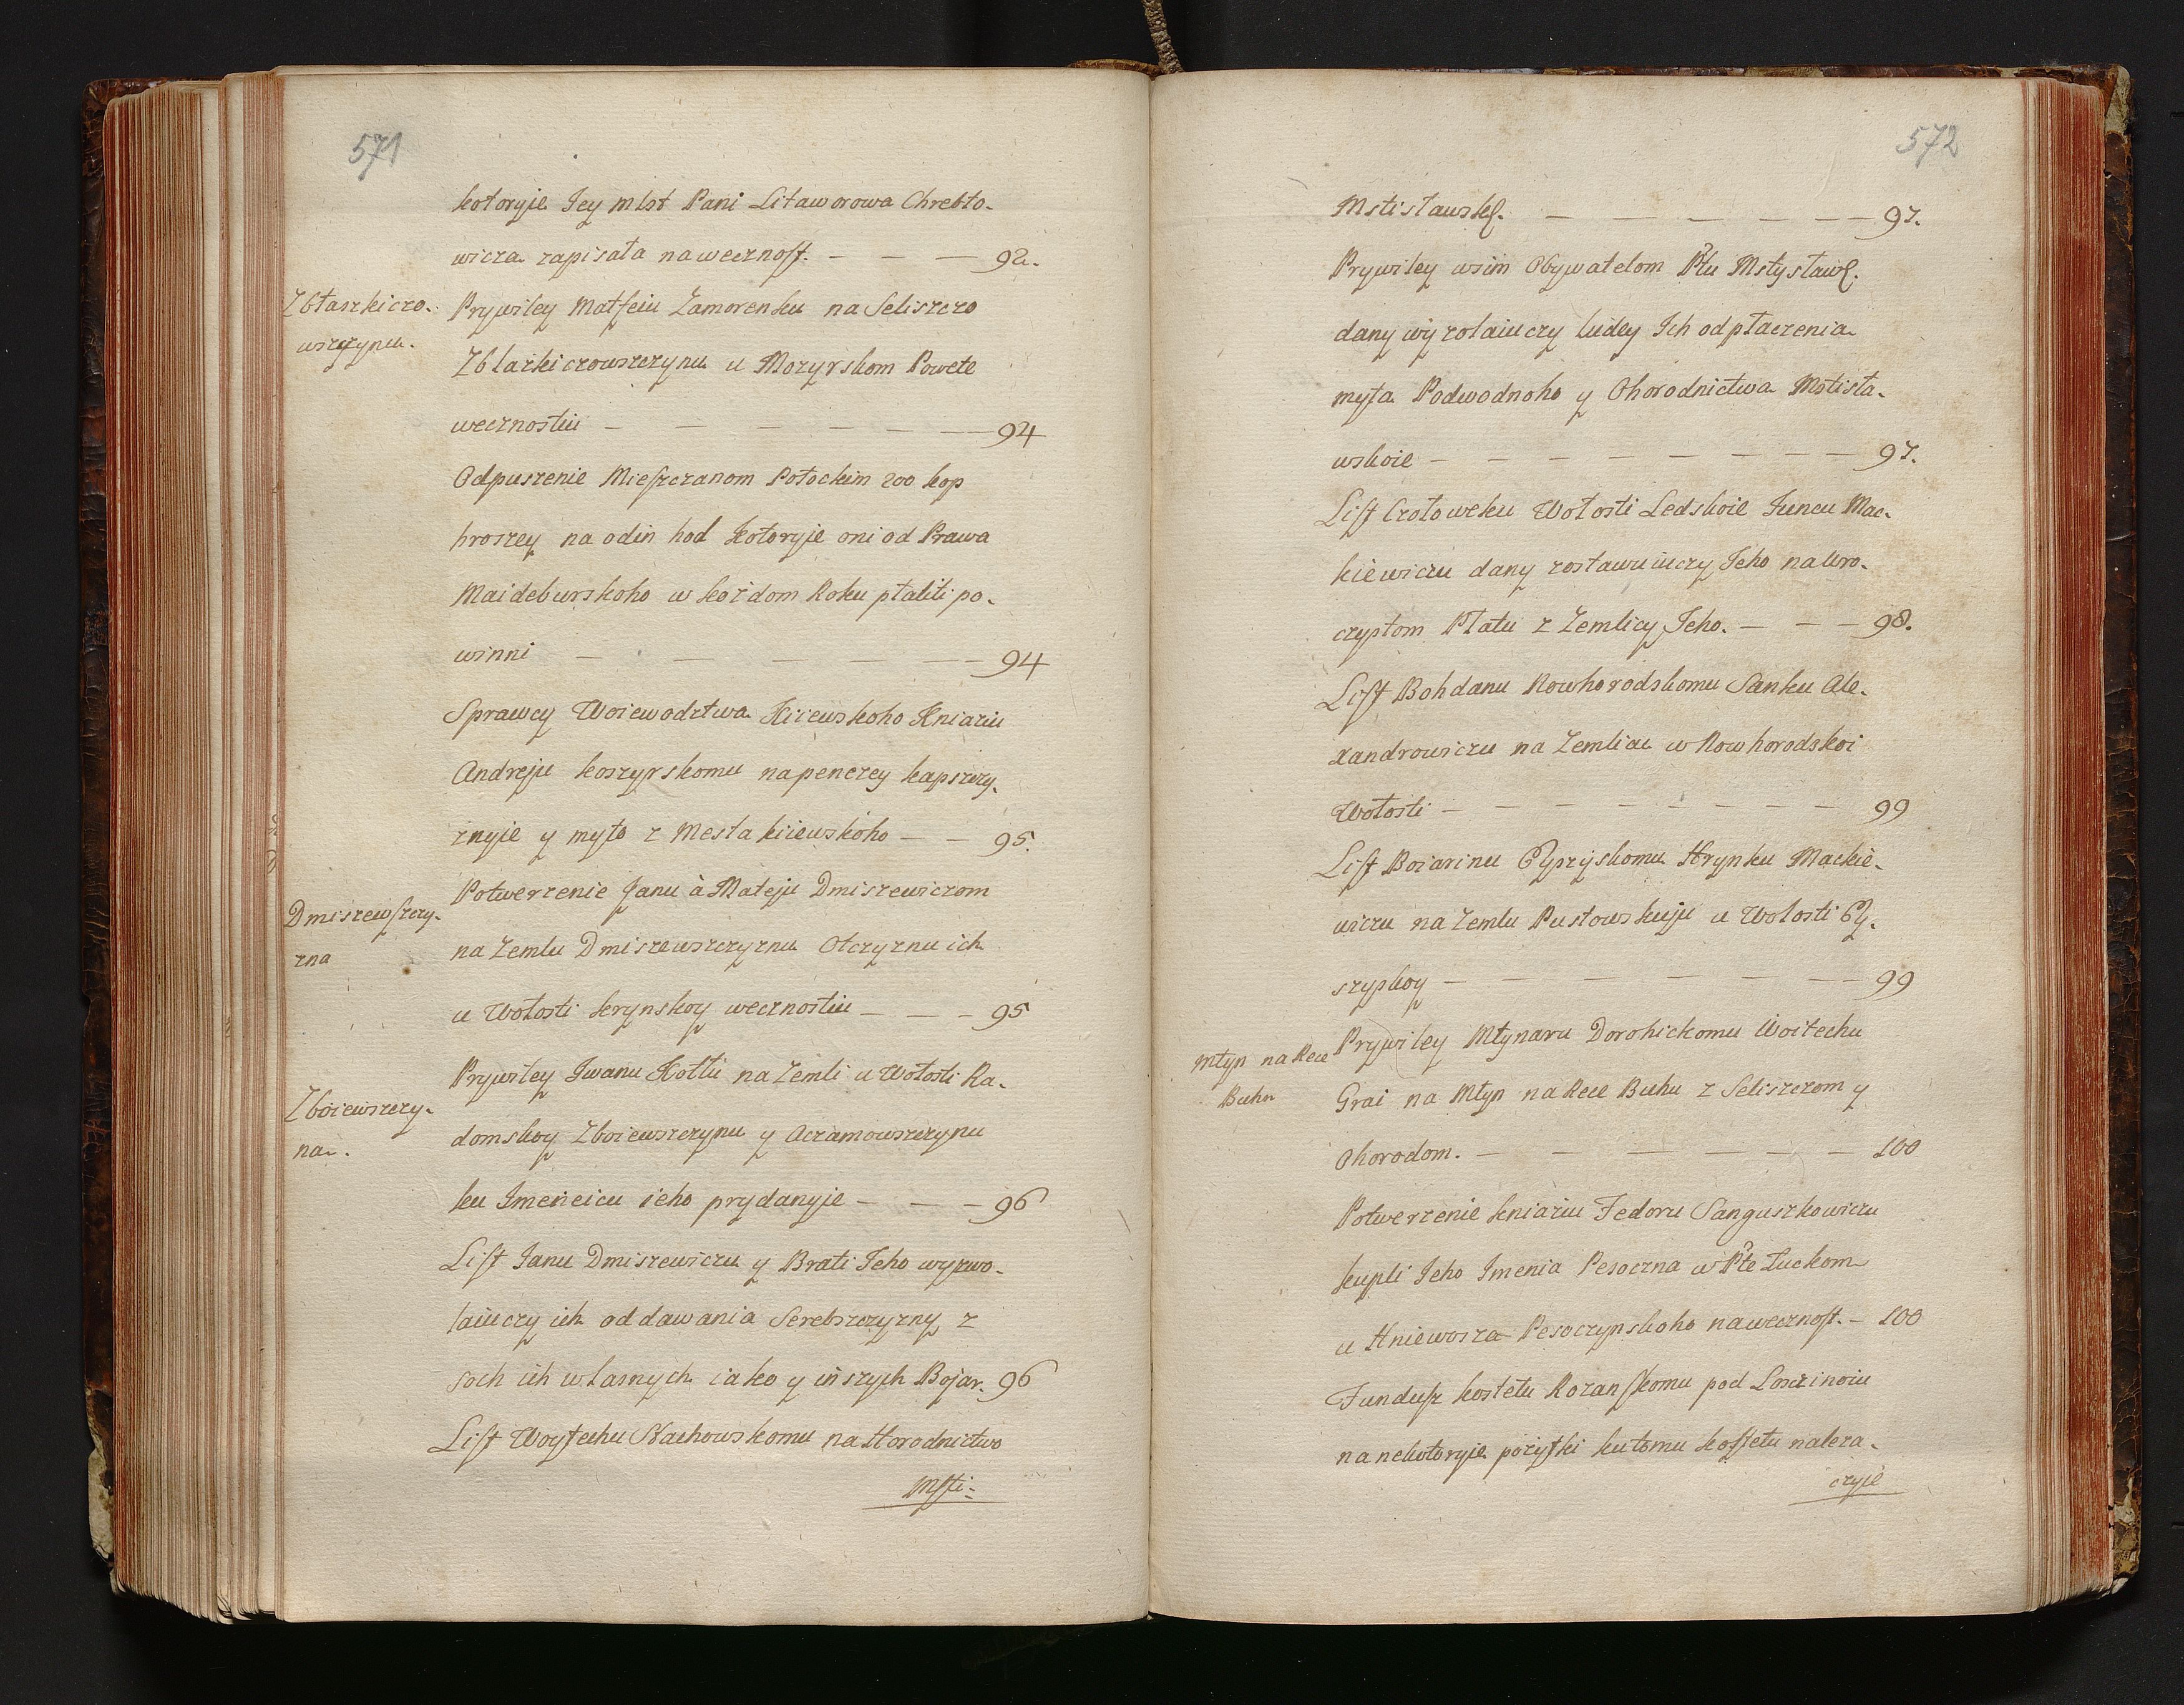 571
kotoryie Jey mlst Pani Litaworowa Chrebto-
wicza zapisała na wecznost. — — — 92.
Zbłaszkiczo-
wszczynu.
Prywiley Matfeiu Zamorenku na Seliszczo
Zblazkiczowszczynu u Mozyrskom Powete
wecznostiu — — — — — — 94
Odpuszenie Mieszczanom Połockim 200 kop
hroszey na odin hod kotoryie oni od Prawa
Maideburskoho w każdom Roku płatili po-
winni — — — — — 94
Sprawcy Woiewodztwa Kiiewskoho Kniaziu
Andreju koszyrskomu na penezey kapszczy-
znyie y myto z Mesta kiiewskoho — — 95.
Dmiszewszczy-
zna
Potwerzenie Janu à Mateju Dmiszewiczom
na Zemlu Dmiszewszczyznu Otczyznu ich
u Wołosti kerynskoy wecznostiu — — — 95
Zboiewszczy-
na.
Prywiley Iwanu Kotlu na Zemli u Wołosti Ra-
domskoy Zboiewszczynu y Aczamowszczynu
ku Imeneicu ieho prydanyie — — — 96
List Janu Dmiszewiczu y Brati Jeho wyzwo-
laiuczy ich od dawania Serebszczyzny z
soch ich wlasnych iako y inszych Bojar. 96
List Woytechu Stachowskomu na Horodnictwo
Msti-
572
Mstislawsk. — — — — — — 97.
Prywiley wsim Obywatelom Ptu Mstysławs.
dany wyzolaiuczy ludey Ich od płaczenia
myta Podwodnoho y Ohorodnictwa Mstisła-
wskoie — — — — — — — 97.
List Czołoweku Wołosti Ledskoie Juncu Mac-
kiewiczu dany zostawuiuczy Jeho na uro-
czystom Płatu z Zemlicy Jeho. — — — 98.
List Bohdanu Nowhorodskomu Sanku Ale-
xandrowiczu na Zemliu w Nowhorodskoi
Wołosti — — — — — — — 99
List Boiarinu Hrynku Mackie-
wiczu na Zemlu Pustowskuju u Wołosti
— — — — — — 99
Młyn na Rece
Buhu
Prywiley Młynaru Dorohickomu Woitechu
Grai na Młyn na Rece Buhu z Seliszczom y
Ohorodom. — — — — — — 100
Potwerzenie kniaziu Fedoru Sanguszkowiczu
kupli Jeho Imenia Pesoczna w Pte Łuckom
u Hniewosza Pesoczynskoho na wecznost. — 100
Fundusz kostełu Rozanskomu pod Losczinoiu
na nekotoryie pożytki ku tomu kostełu naleza-
czyie